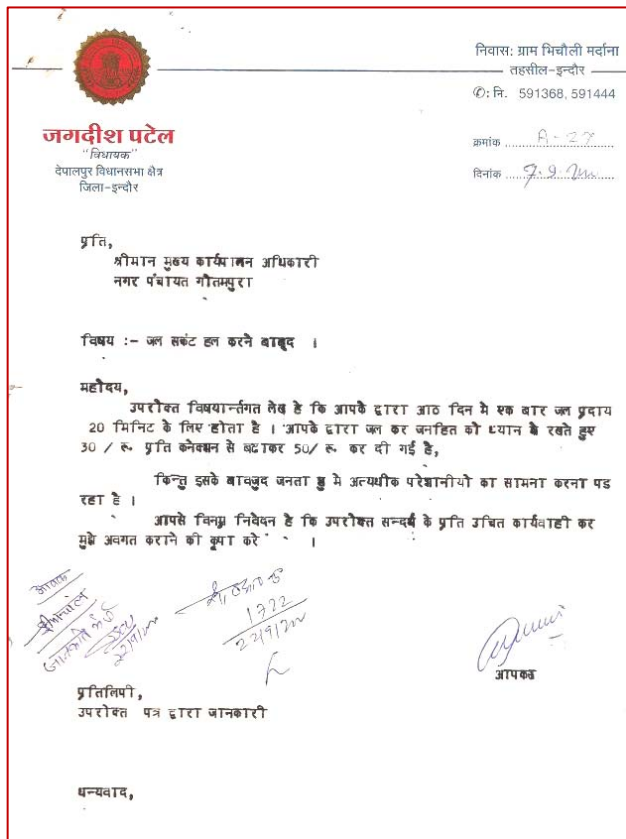 निवास: ग्राम भिचौली मर्दाना
तहसील-इन्दौर
✆: नि. 591368, 591444
जगदीश पटेल
"विधायक"
देपालपुर विधानसभा क्षेत्र
जिला-इन्दौर
क्रमांक A-27
दिनांक 7.9.
प्रति,
श्रीमान मुख्य कार्यपालन अधिकारी
नगर पंचायत गौतमपुरा
विषय :- जल सकंट हल करने बाबूद ।
महोदय,
उपरोक्त विषयार्न्तगत लेख है कि आपके द्वारा आठ दिन मे एक बार जल प्रदाय
20 मिनिट के लिए होता है । आपके द्वारा जल कर जनहित को ध्यान के रखते हुए
30 / रू. प्रति कनेक्शन से बटाकर 50/ रू. कर दी गई है,
किन्तु इसके बावजुद जनता मे अत्यधीक परेशानीयो का सामना करना पड
रहा है ।
आपसे विनम्र निवेदन है कि उपरोक्त सन्दर्भ के प्रति उचित कार्यवाही कर
मुझे अवगत कराने की कृपा करे ।
आवक
1722
22/9/200
22/9/200
आपका
प्रतिलिपी,
उपरोक्त पत्र द्वारा जानकारी
धन्यवाद,